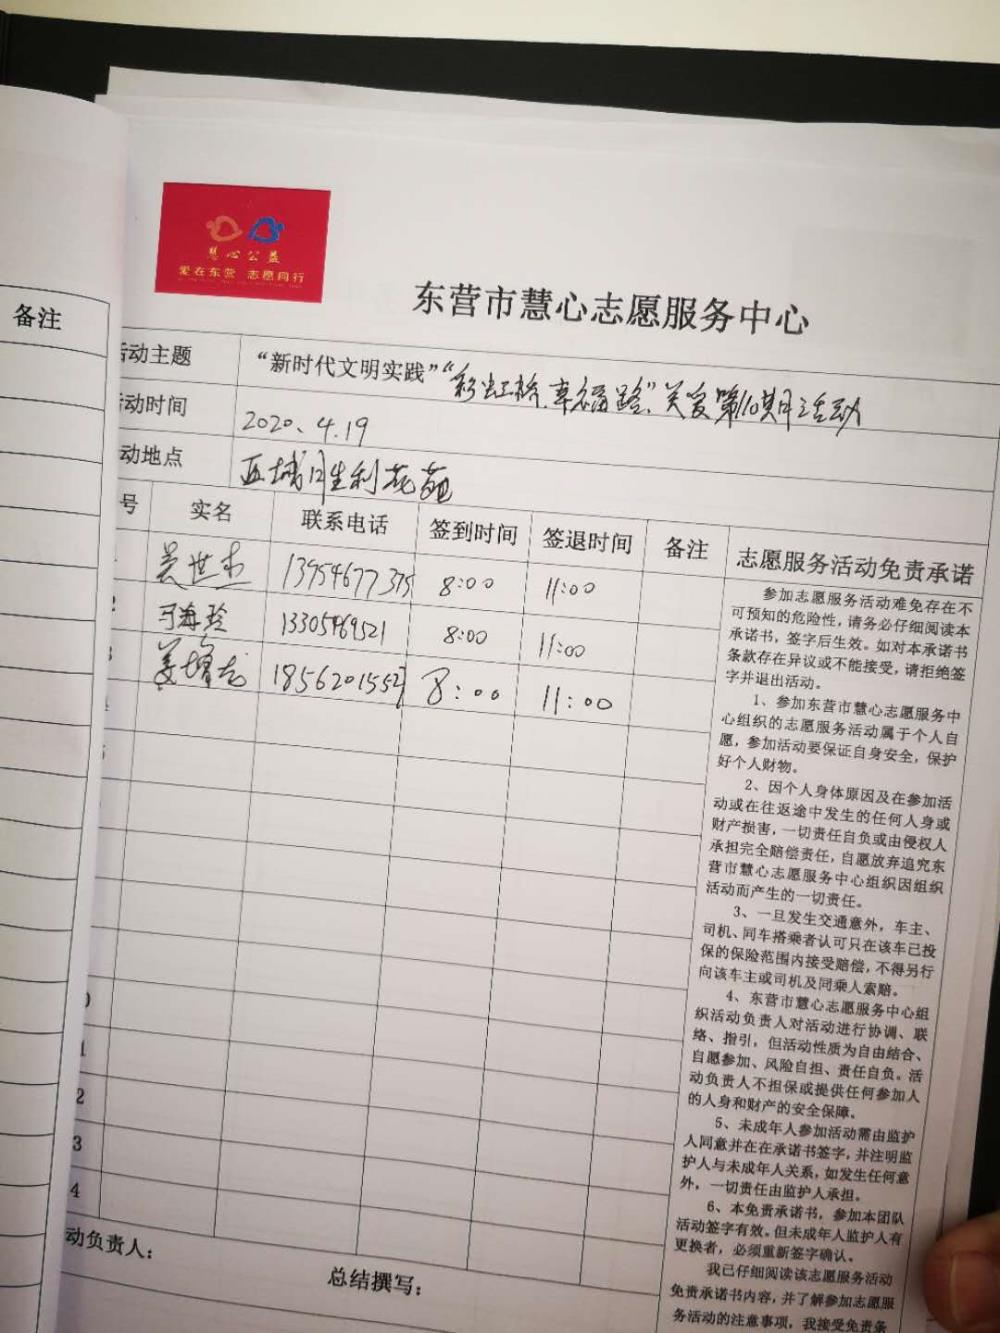 慧心公益
爱在东营 志愿同行
东营市慧心志愿服务中心
备注
活动主题 “新时代文明实践”“彩虹桥.幸福路”关爱第10期活动
动时间 2020、4.19
动地点 利花苑
号 实名 联系电话 签到时间 签退时间 备注 志愿服务活动免责承诺
吴世杰 13954677375 8:00 11:00
2 马海玲 13305469521 8:00 11:00
姜 18562015527 8:00 11:00
参加志愿服务活动难免存在不
可预知的危险性，请务必仔细阅读本
承诺书，签字后生效。如对本承诺书
条款存在异议或不能接受，请拒绝签
字并退出活动。
1、参加东营市慧心志愿服务中
心组织的志愿服务活动属于个人自
愿，参加活动要保证自身安全，保护
好个人财物。
2、因个人身体原因及在参加活
动或在往返途中发生的任何人身或
财产损害，一切责任自负或由侵权人
承担完全赔偿责任，自愿放弃追究东
营市慧心志愿服务中心组织因组织
活动而产生的一切责任。
3、一旦发生交通意外，车主、
司机、同车搭乘者认可只在该车已投
保的保险范围内接受赔偿，不得另行
向该车主或司机及同乘人索赔。
4、东营市慧心志愿服务中心组
织活动负责人对活动进行协调、联
络、指引，但活动性质为自由结合、
自愿参加、风险自担、责任自负。活
动负责人不担保或提供任何参加人
的人身和财产的安全保障。
5、未成年人参加活动需由监护
人同意并在在承诺书签字，并注明监
护人与未成年人关系，如发生任何意
外，一切责任由监护人承担。
6、本免责承诺书，参加本团队
活动签字有效。但未成年人监护人有
更换者，必须重新签字确认。
我已仔细阅读该志愿服务活动
免责承诺书内容，并了解参加志愿服
务活动的注意事项，我接受免责条
0
1
2
3
4
动负责人：
总结撰写：